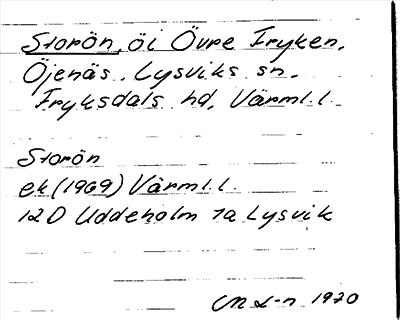 Storön, öi Övre Fryken,
Öjenäs, Lysviks sn.
Fryksdals hd, Värml. l.
Storön
ek (1969) Värml. l.
12D Uddeholm 1a Lysvik
1970